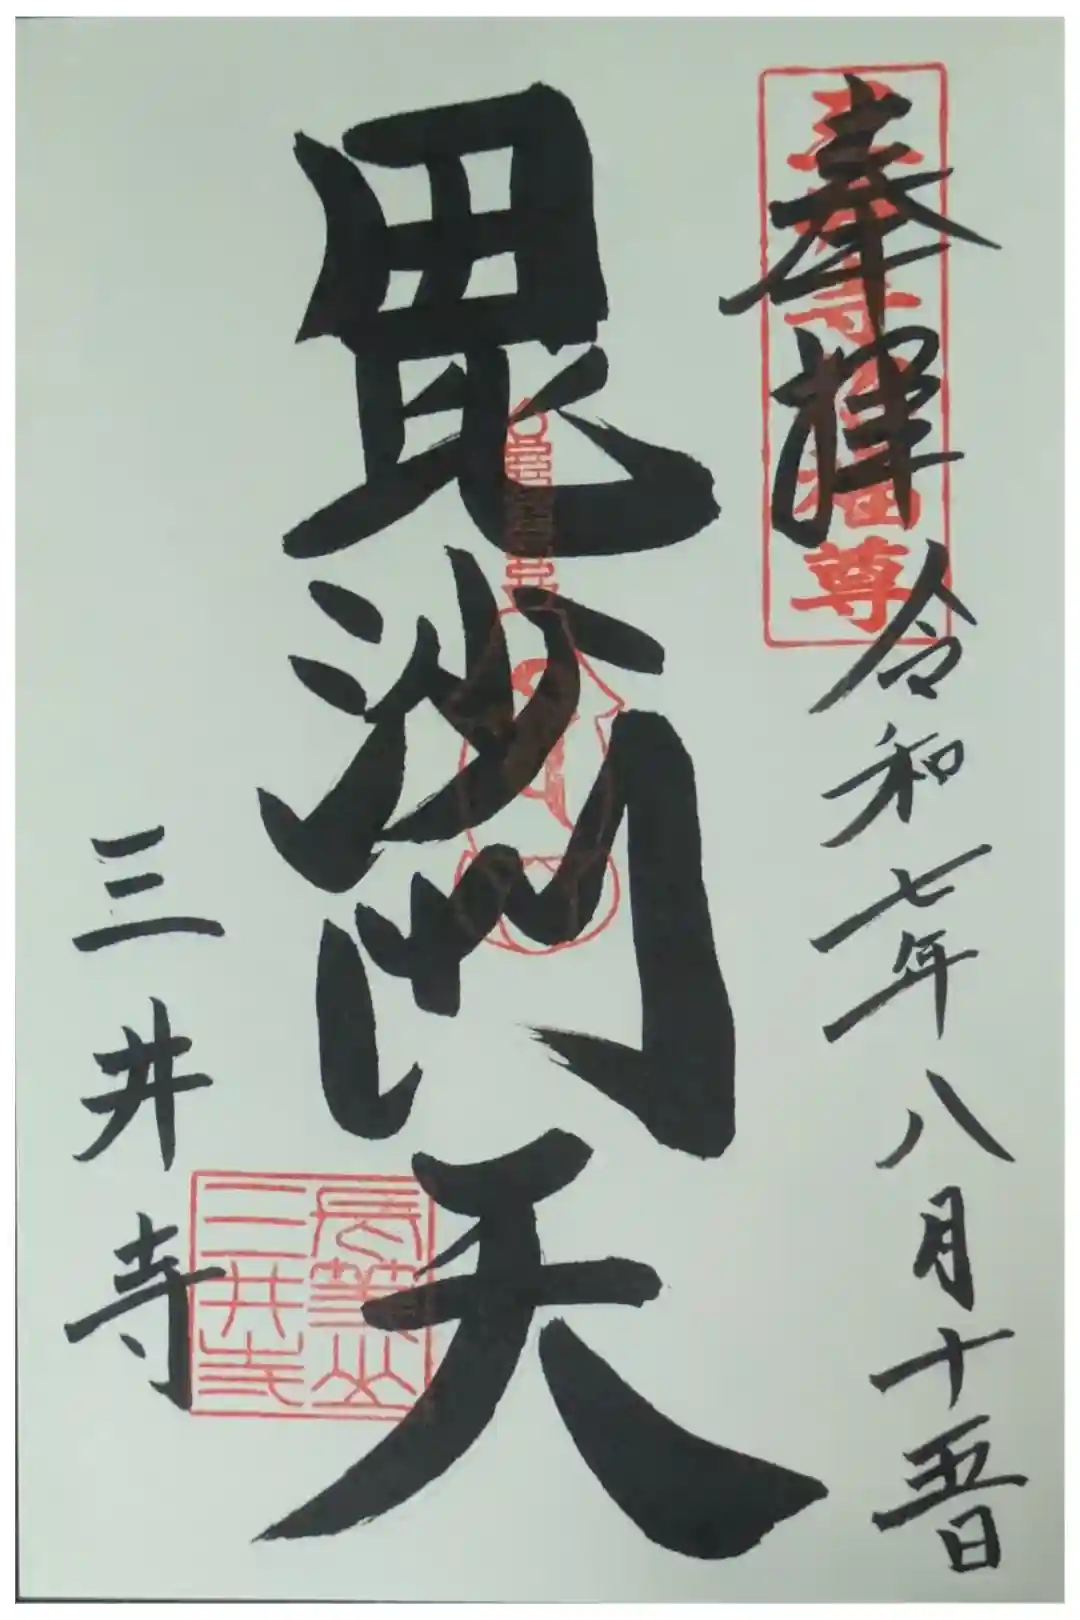 奉拝
令和七年八月十五日
毘沙門天
三井寺
長等山
三井寺